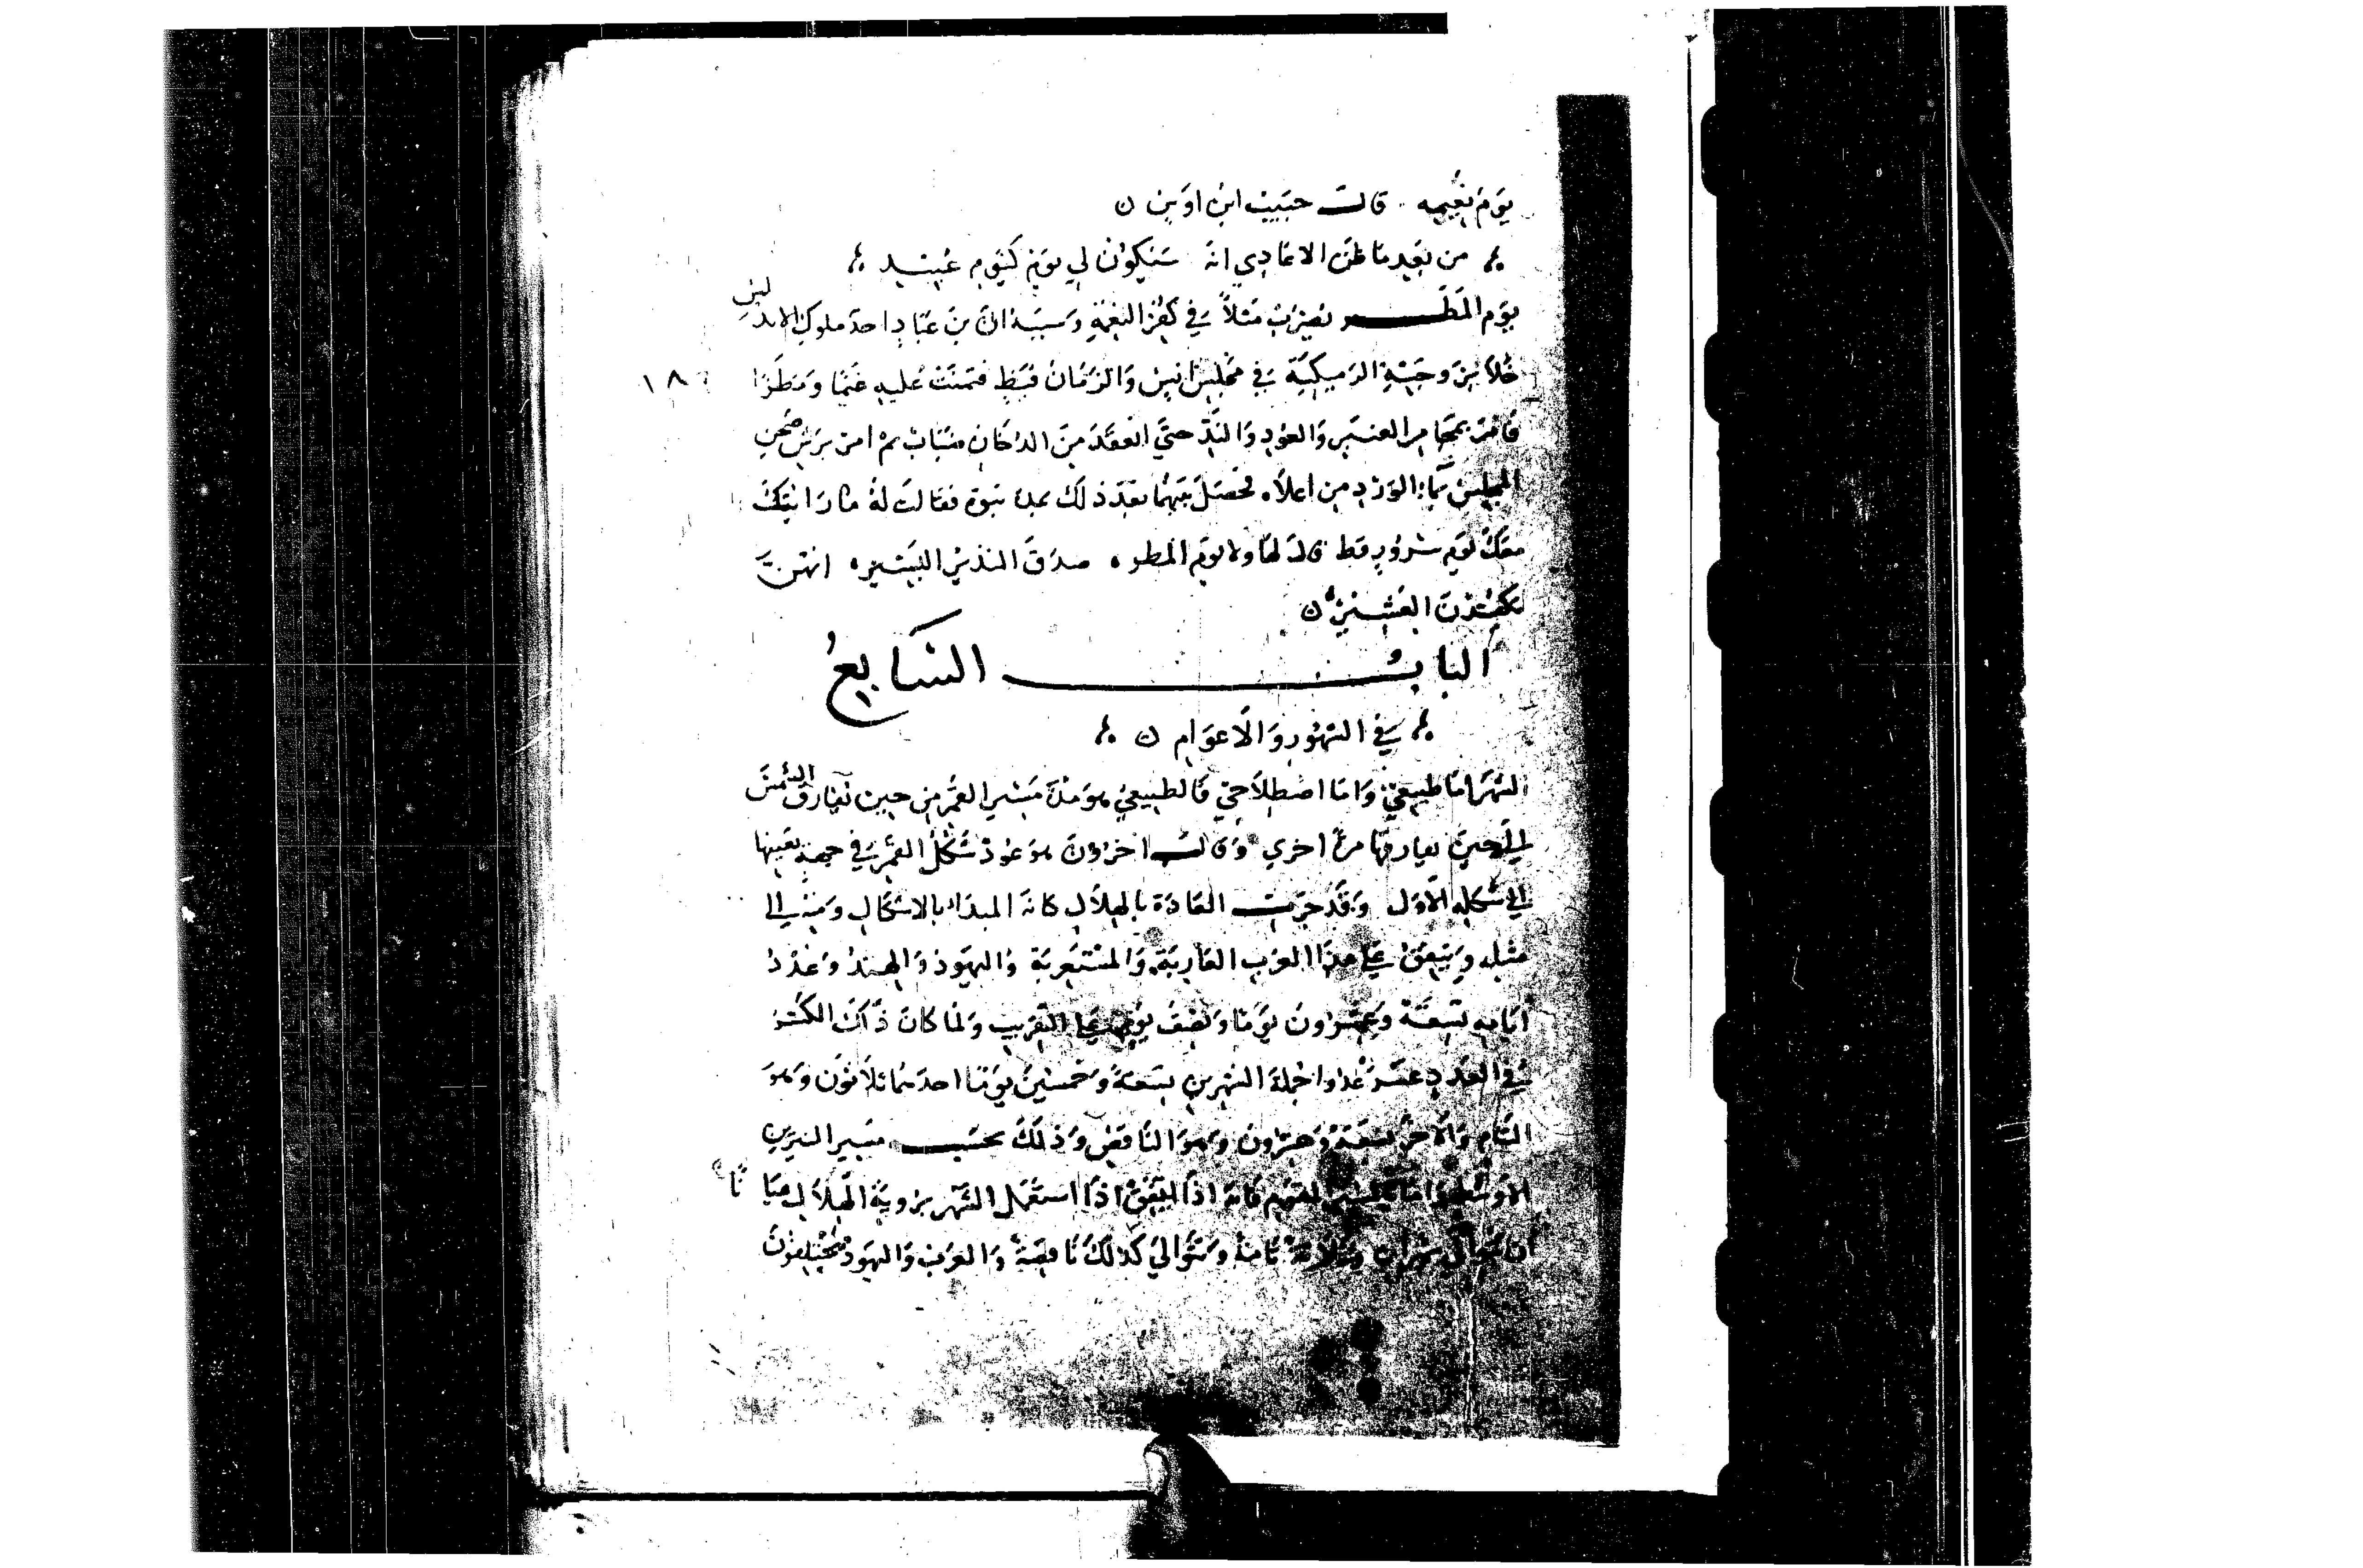 يوم نعيمه قالت حبيب ابن اوس ن
من بعد ما ظن الاعادي انه سيكون لي يوم كيوم عبيد
يوم المطر يضرب مثلاً في كفر النعمة وسببه ان بن عباد احد ملوك الاندلس
خلا بزوجته الرميكية في مجلس انس والزمان قيظ فتمنت عليه غيما ومطرا
١٨
فامر بمجامر العنبر والعود والند حتى انعقد من الدخان ضباب ثم امر برش صحن
المجلس بماء الورد من اعلاه فحصل بينهما بعد ذلك نبوة فقالت له ما رايتك
معك يوم سرور قط قال لها ولا يوم المطر صدق النذير البشير انهن
يكفرن العشير ن
الباب السابع
في الشهور والاعوام ن
الشهر اما طبيعي واما اصطلاحي فالطبيعي هو مدة مسير القمر من حين تفارق الشمس
الى حين يفارقها مرة اخري وقالت اخرون هو عود شكل القمر في جهة بعينها
الي شكله الاول وقد جرت العادة بالهلال كانه المبدا بالاشكال ومنه الى
مثله ويتفق على هذا العرب العاربة والمستعربة واليهود والهند وعدد
ايامه تسعة وعشرون يوما ونصف يوم على التقريب ولما كان ذاك الكسر
في العدد عسر عدوا جملة الشهرين تسعة وخمسين يوما احدهما ثلاثون وهو
التام والاخر تسعة وعشرون وهو الناقص وذلك بحسب مسير النيرين
الاوسط فانه اذا استعمل الشهر بروية الهلال
وثلاثة تامة وتتوالي كذلك ناقصة والعرب واليهود مختلفون